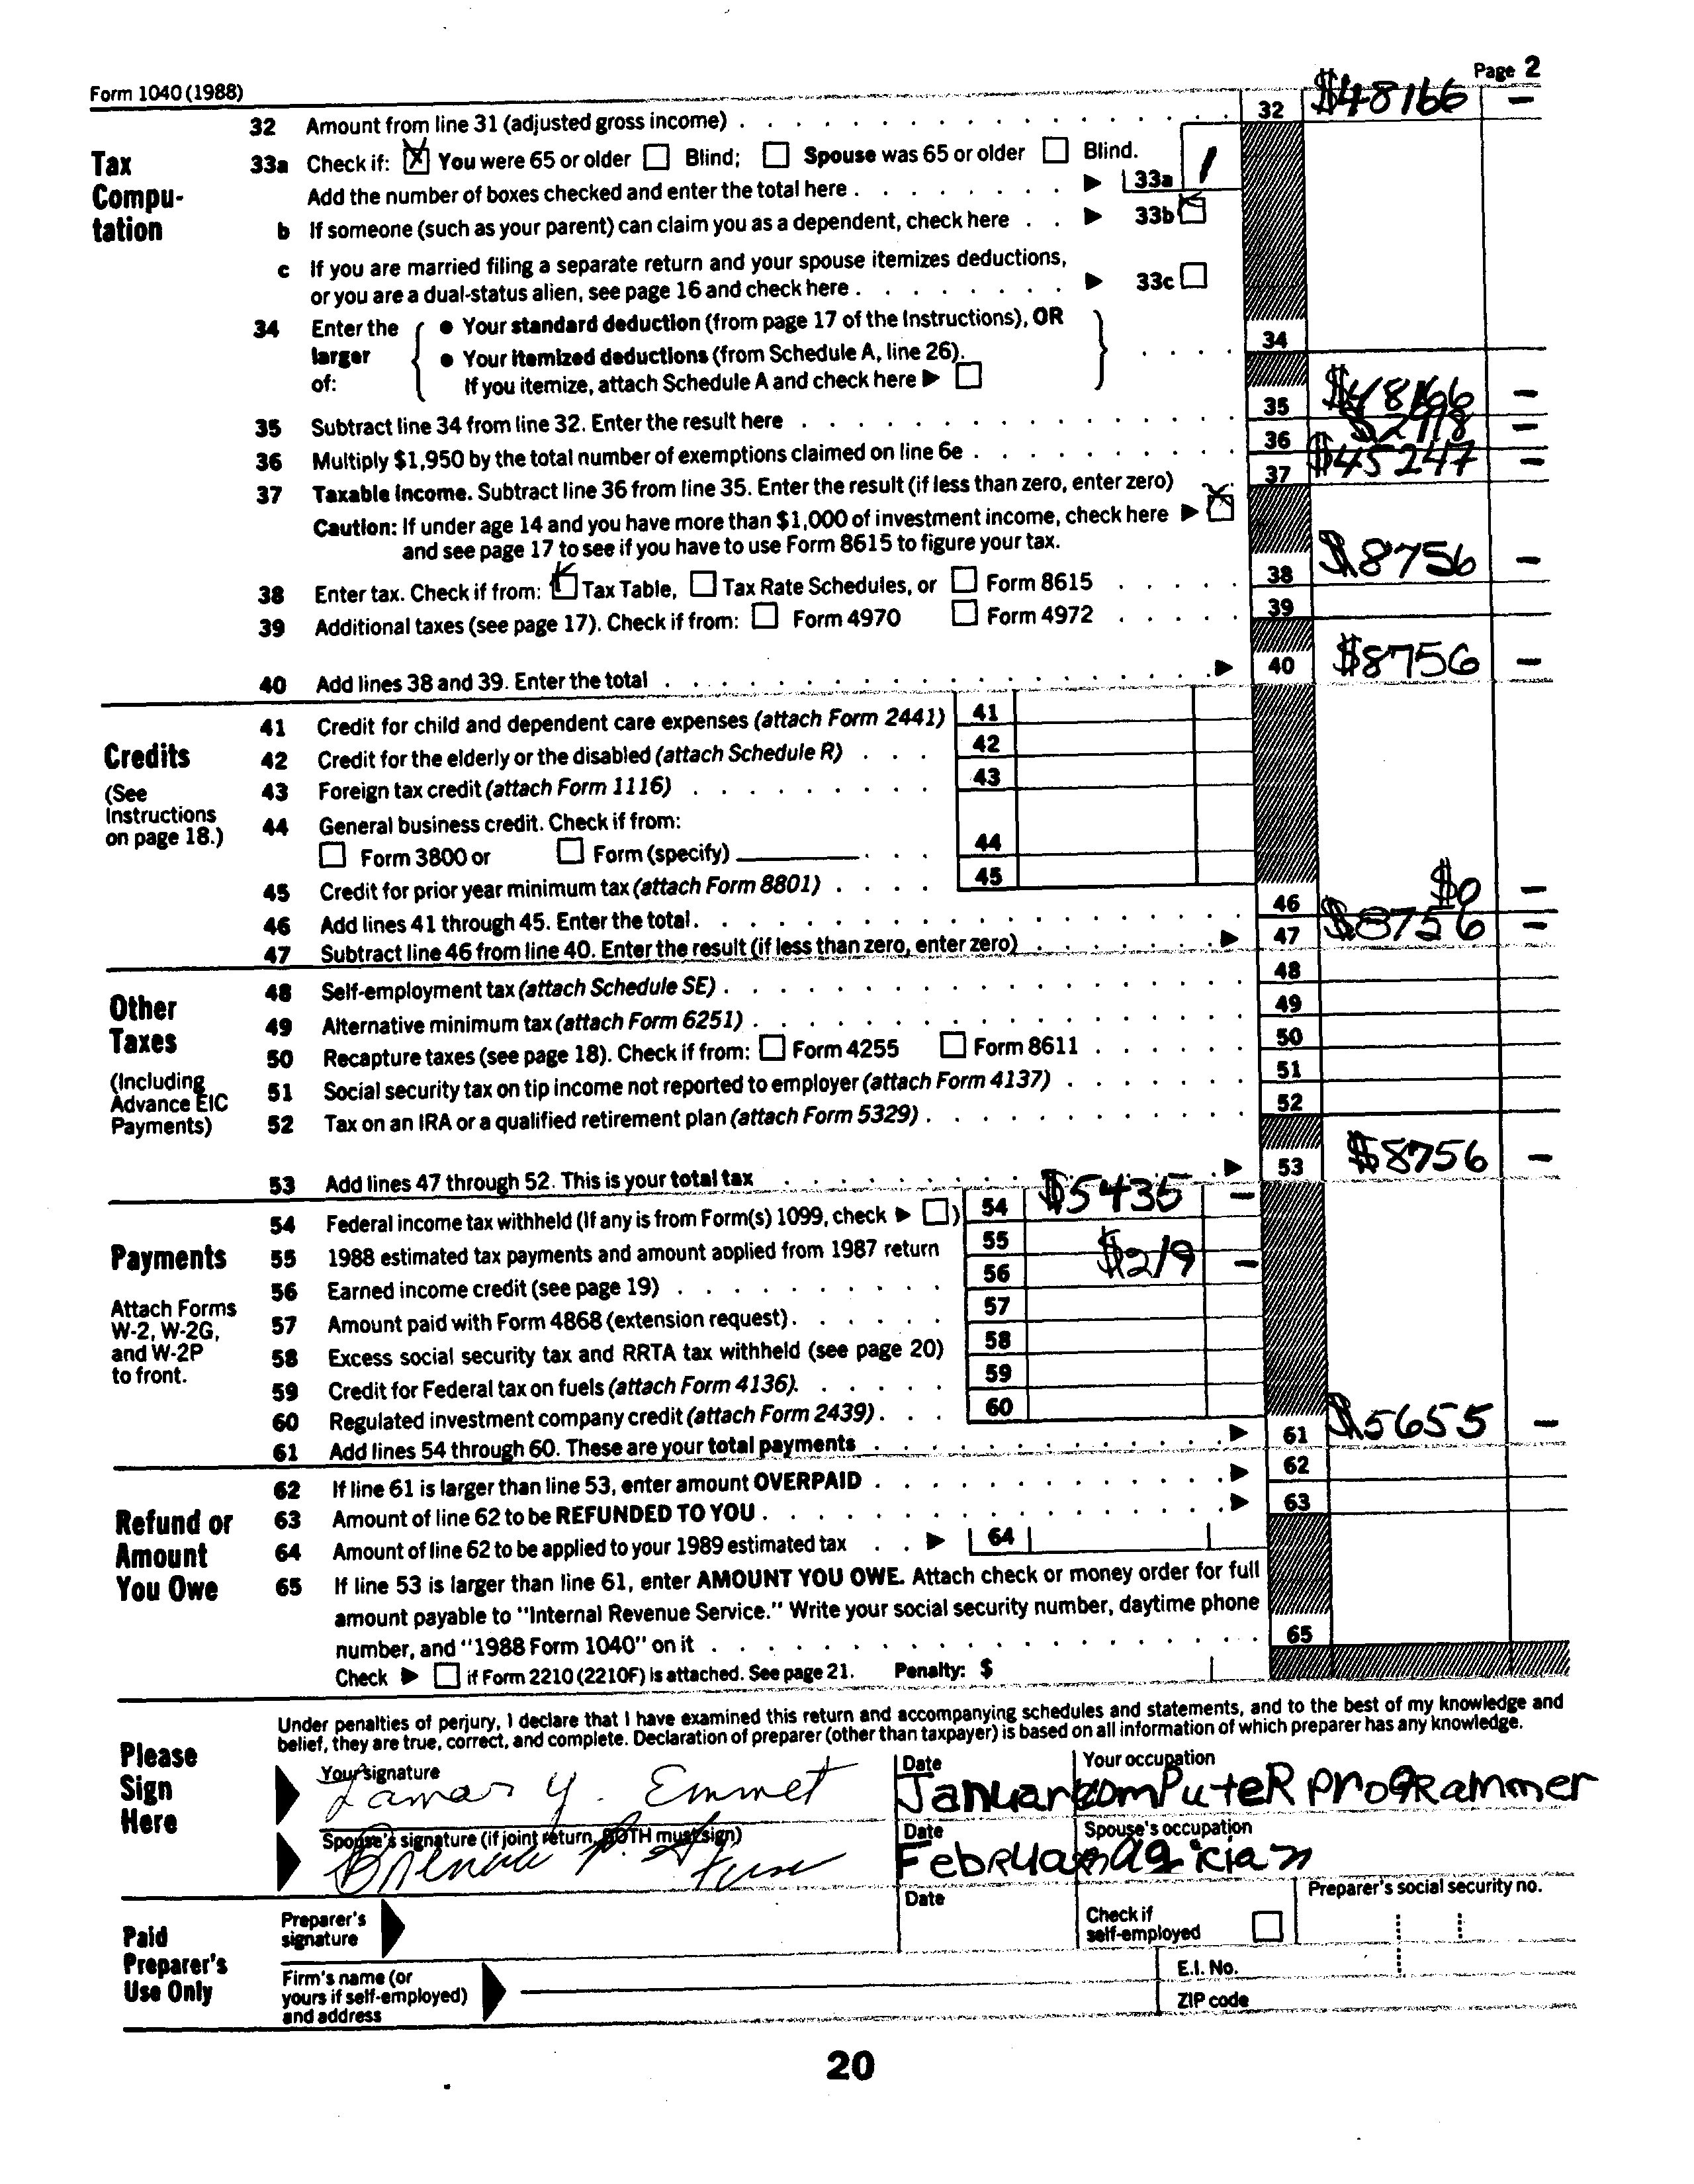 Form 1040 (1988) Page 2
32 Amount from line 31 (adjusted gross income) 32 $48166 –
Tax Compu- tation
33a Check if: X You were 65 or older Blind; Spouse was 65 or older Blind.
Add the number of boxes checked and enter the total here 33a 1
b If someone (such as your parent) can claim you as a dependent, check here 33b X
c If you are married filing a separate return and your spouse itemizes deductions,
or you are a dual-status alien, see page 16 and check here 33c
34 Enter the larger of:
● Your standard deduction (from page 17 of the Instructions), OR
● Your itemized deductions (from Schedule A, line 26).
If you itemize, attach Schedule A and check here ▶
34
35 Subtract line 34 from line 32. Enter the result here 35 $48166 –
36 Multiply $1,950 by the total number of exemptions claimed on line 6e 36 $2918 –
37 Taxable income. Subtract line 36 from line 35. Enter the result (if less than zero, enter zero) 37 $45247 –
Caution: If under age 14 and you have more than $1,000 of investment income, check here ▶ X
and see page 17 to see if you have to use Form 8615 to figure your tax.
38 Enter tax. Check if from: X Tax Table, Tax Rate Schedules, or Form 8615 38 $8756 –
39 Additional taxes (see page 17). Check if from: Form 4970 Form 4972 39
40 Add lines 38 and 39. Enter the total ▶ 40 $8756 –
Credits
(See Instructions on page 18.)
41 Credit for child and dependent care expenses (attach Form 2441) 41
42 Credit for the elderly or the disabled (attach Schedule R) 42
43 Foreign tax credit (attach Form 1116) 43
44 General business credit. Check if from:
Form 3800 or Form (specify) 44
45 Credit for prior year minimum tax (attach Form 8801) 45
46 Add lines 41 through 45. Enter the total 46 $0 –
47 Subtract line 46 from line 40. Enter the result (if less than zero, enter zero) ▶ 47 $8756 –
Other Taxes
(Including Advance EIC Payments)
48 Self-employment tax (attach Schedule SE) 48
49 Alternative minimum tax (attach Form 6251) 49
50 Recapture taxes (see page 18). Check if from: Form 4255 Form 8611 50
51 Social security tax on tip income not reported to employer (attach Form 4137) 51
52 Tax on an IRA or a qualified retirement plan (attach Form 5329) 52
53 Add lines 47 through 52. This is your total tax ▶ 53 $8756 –
Payments
Attach Forms W-2, W-2G, and W-2P to front.
54 Federal income tax withheld (If any is from Form(s) 1099, check ▶ ) 54 $5435 –
55 1988 estimated tax payments and amount applied from 1987 return 55
56 Earned income credit (see page 19) 56 $219 –
57 Amount paid with Form 4868 (extension request) 57
58 Excess social security tax and RRTA tax withheld (see page 20) 58
59 Credit for Federal tax on fuels (attach Form 4136) 59
60 Regulated investment company credit (attach Form 2439) 60
61 Add lines 54 through 60. These are your total payments ▶ 61 $5655 –
Refund or Amount You Owe
62 If line 61 is larger than line 53, enter amount OVERPAID ▶ 62
63 Amount of line 62 to be REFUNDED TO YOU ▶ 63
64 Amount of line 62 to be applied to your 1989 estimated tax ▶ 64
65 If line 53 is larger than line 61, enter AMOUNT YOU OWE. Attach check or money order for full
amount payable to "Internal Revenue Service." Write your social security number, daytime phone
number, and "1988 Form 1040" on it 65
Check ▶ if Form 2210 (2210F) is attached. See page 21. Penalty: $
Please Sign Here
Under penalties of perjury, I declare that I have examined this return and accompanying schedules and statements, and to the best of my knowledge and
belief, they are true, correct, and complete. Declaration of preparer (other than taxpayer) is based on all information of which preparer has any knowledge.
Your signature Date Your occupation
Lamar Y. Emmet Januar computer programmer
Spouse's signature (if joint return, BOTH must sign) Date Spouse's occupation
Februa magician
Paid Preparer's Use Only
Preparer's signature Date Check if self-employed Preparer's social security no.
Firm's name (or yours if self-employed) and address E.I. No.
ZIP code
20